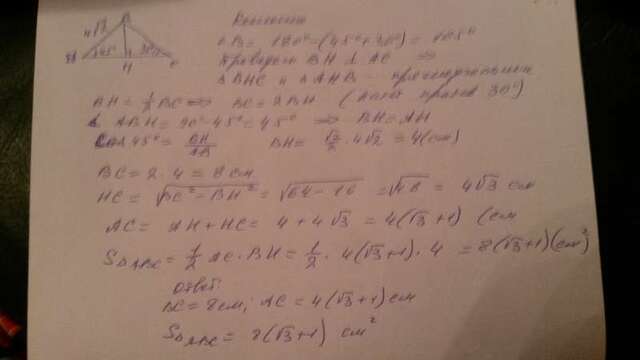 B
4√3
45°
30°
H
C
Решение
∠B = 180° - (45° + 30°) = 105°
Проведем BH ⊥ AC ⇒
△BHC и △AHB - прямоугольные
BH = ½ BC ⇒ BC = 2BH (катет против 30°)
∠ABH = 90° - 45° = 45° ⇒ BH = AH
Cos 45° = BH/AB BH = √2/2 · 4√2 = 4 (см)
BC = 2 · 4 = 8 см
HC = √BC² - BH² = √64 - 16 = √48 = 4√3 см
AC = AH + HC = 4 + 4√3 = 4(√3 + 1) (см
S△ABC = ½ AC · BH = ½ · 4(√3+1) · 4 = 8(√3+1) (см²)
Ответ:
BC = 8 см; AC = 4(√3+1) см
S△ABC = 8(√3+1) см²